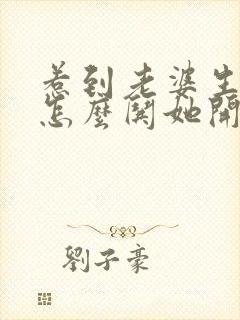 惹到老婆生
怎麼鬨她開
劉子豪